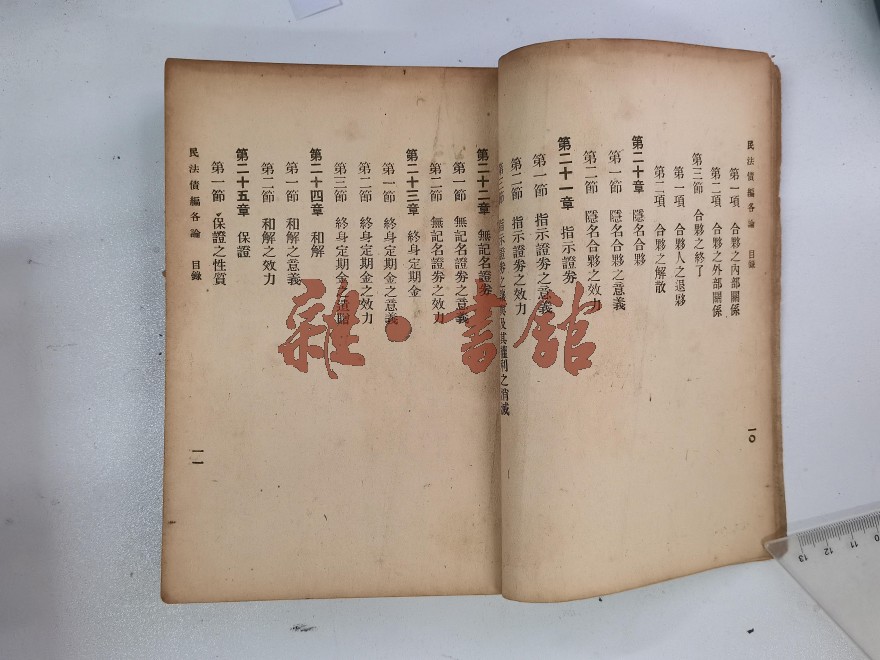 民法債編各論 目錄
第一項 合夥之內部關係
第二項 合夥之外部關係
第三節 合夥之終了
第一項 合夥人之退夥
第二項 合夥之解散
第二十章 隱名合夥
第一節 隱名合夥之意義
第二節 隱名合夥之效力
第二十一章 指示證券
第一節 指示證券之意義
第二節 指示證券之效力
第三節 指示證券之讓與及其權利之消滅
一〇
第二十二章 無記名證券
第一節 無記名證券之意義
第二節 無記名證券之效力
第二十三章 終身定期金
第一節 終身定期金之意義
第二節 終身定期金之效力
第三節 終身定期金之
第二十四章 和解
第一節 和解之意義
第二節 和解之效力
第二十五章 保證
第一節 保證之性質
民法債編各論 目錄
一一
雜·書館
13 12 11 10